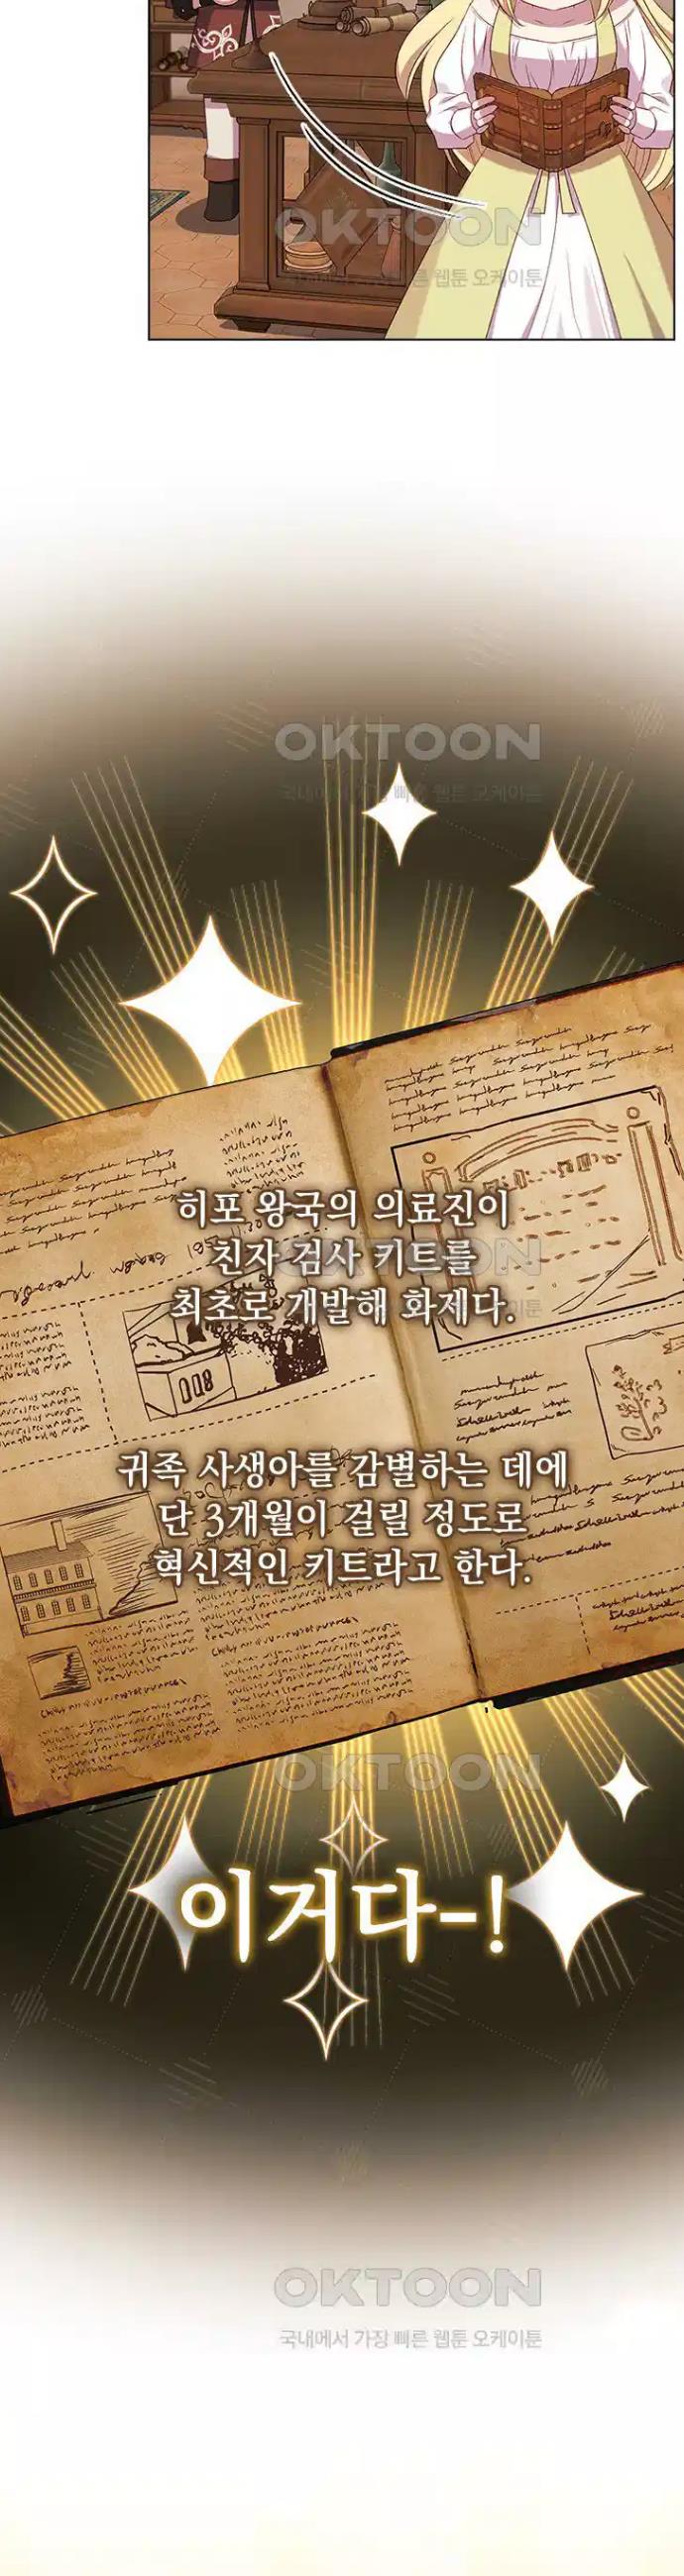 OKTOON
국내에서 가장 빠른 웹툰 오케이툰
OKTOON
국내에서 가장 빠른 웹툰 오케이툰
히포 왕국의 의료진이
친자 검사 키트를
최초로 개발해 화제다.
OKTOON
008
귀족 사생아를 감별하는 데에
단 3개월이 걸릴 정도로
혁신적인 키트라고 한다.
OKTOON
이거다-!
OKTOON
국내에서 가장 빠른 웹툰 오케이툰